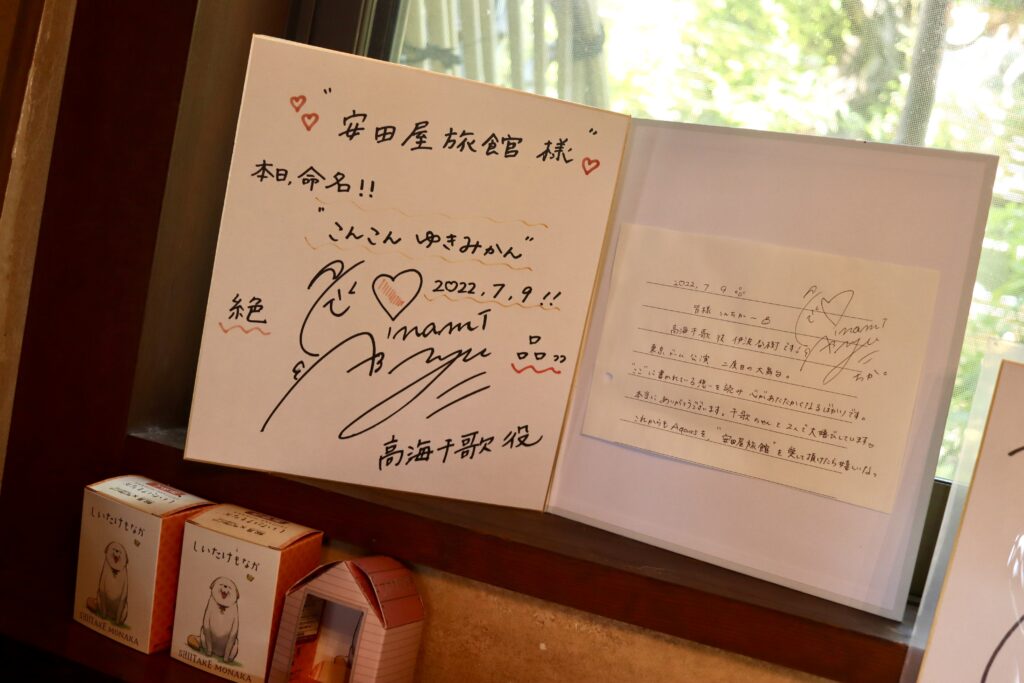 "安田屋旅館 様"
本日、命名!!
"こんこん ゆきみかん"
2022.7.9!!
絶品
inami
Anju
高海千歌 役
2022.7.9
皆様 こんちかー
高海千歌 役 伊波杏樹です!
東京ドーム公演 二度目の大舞台。
ここに書かれている想いを読み 心があたたかくなるばかりです。
本当にありがとうございます。千歌ちゃんと2人で大喜びしています。
これからもAqoursを、"安田屋旅館"を愛して頂けたら嬉しいなっ
ちか。
しいたけもなか
SHIITAKE MONAKA
しいたけもなか
SHIITAKE MONAKA